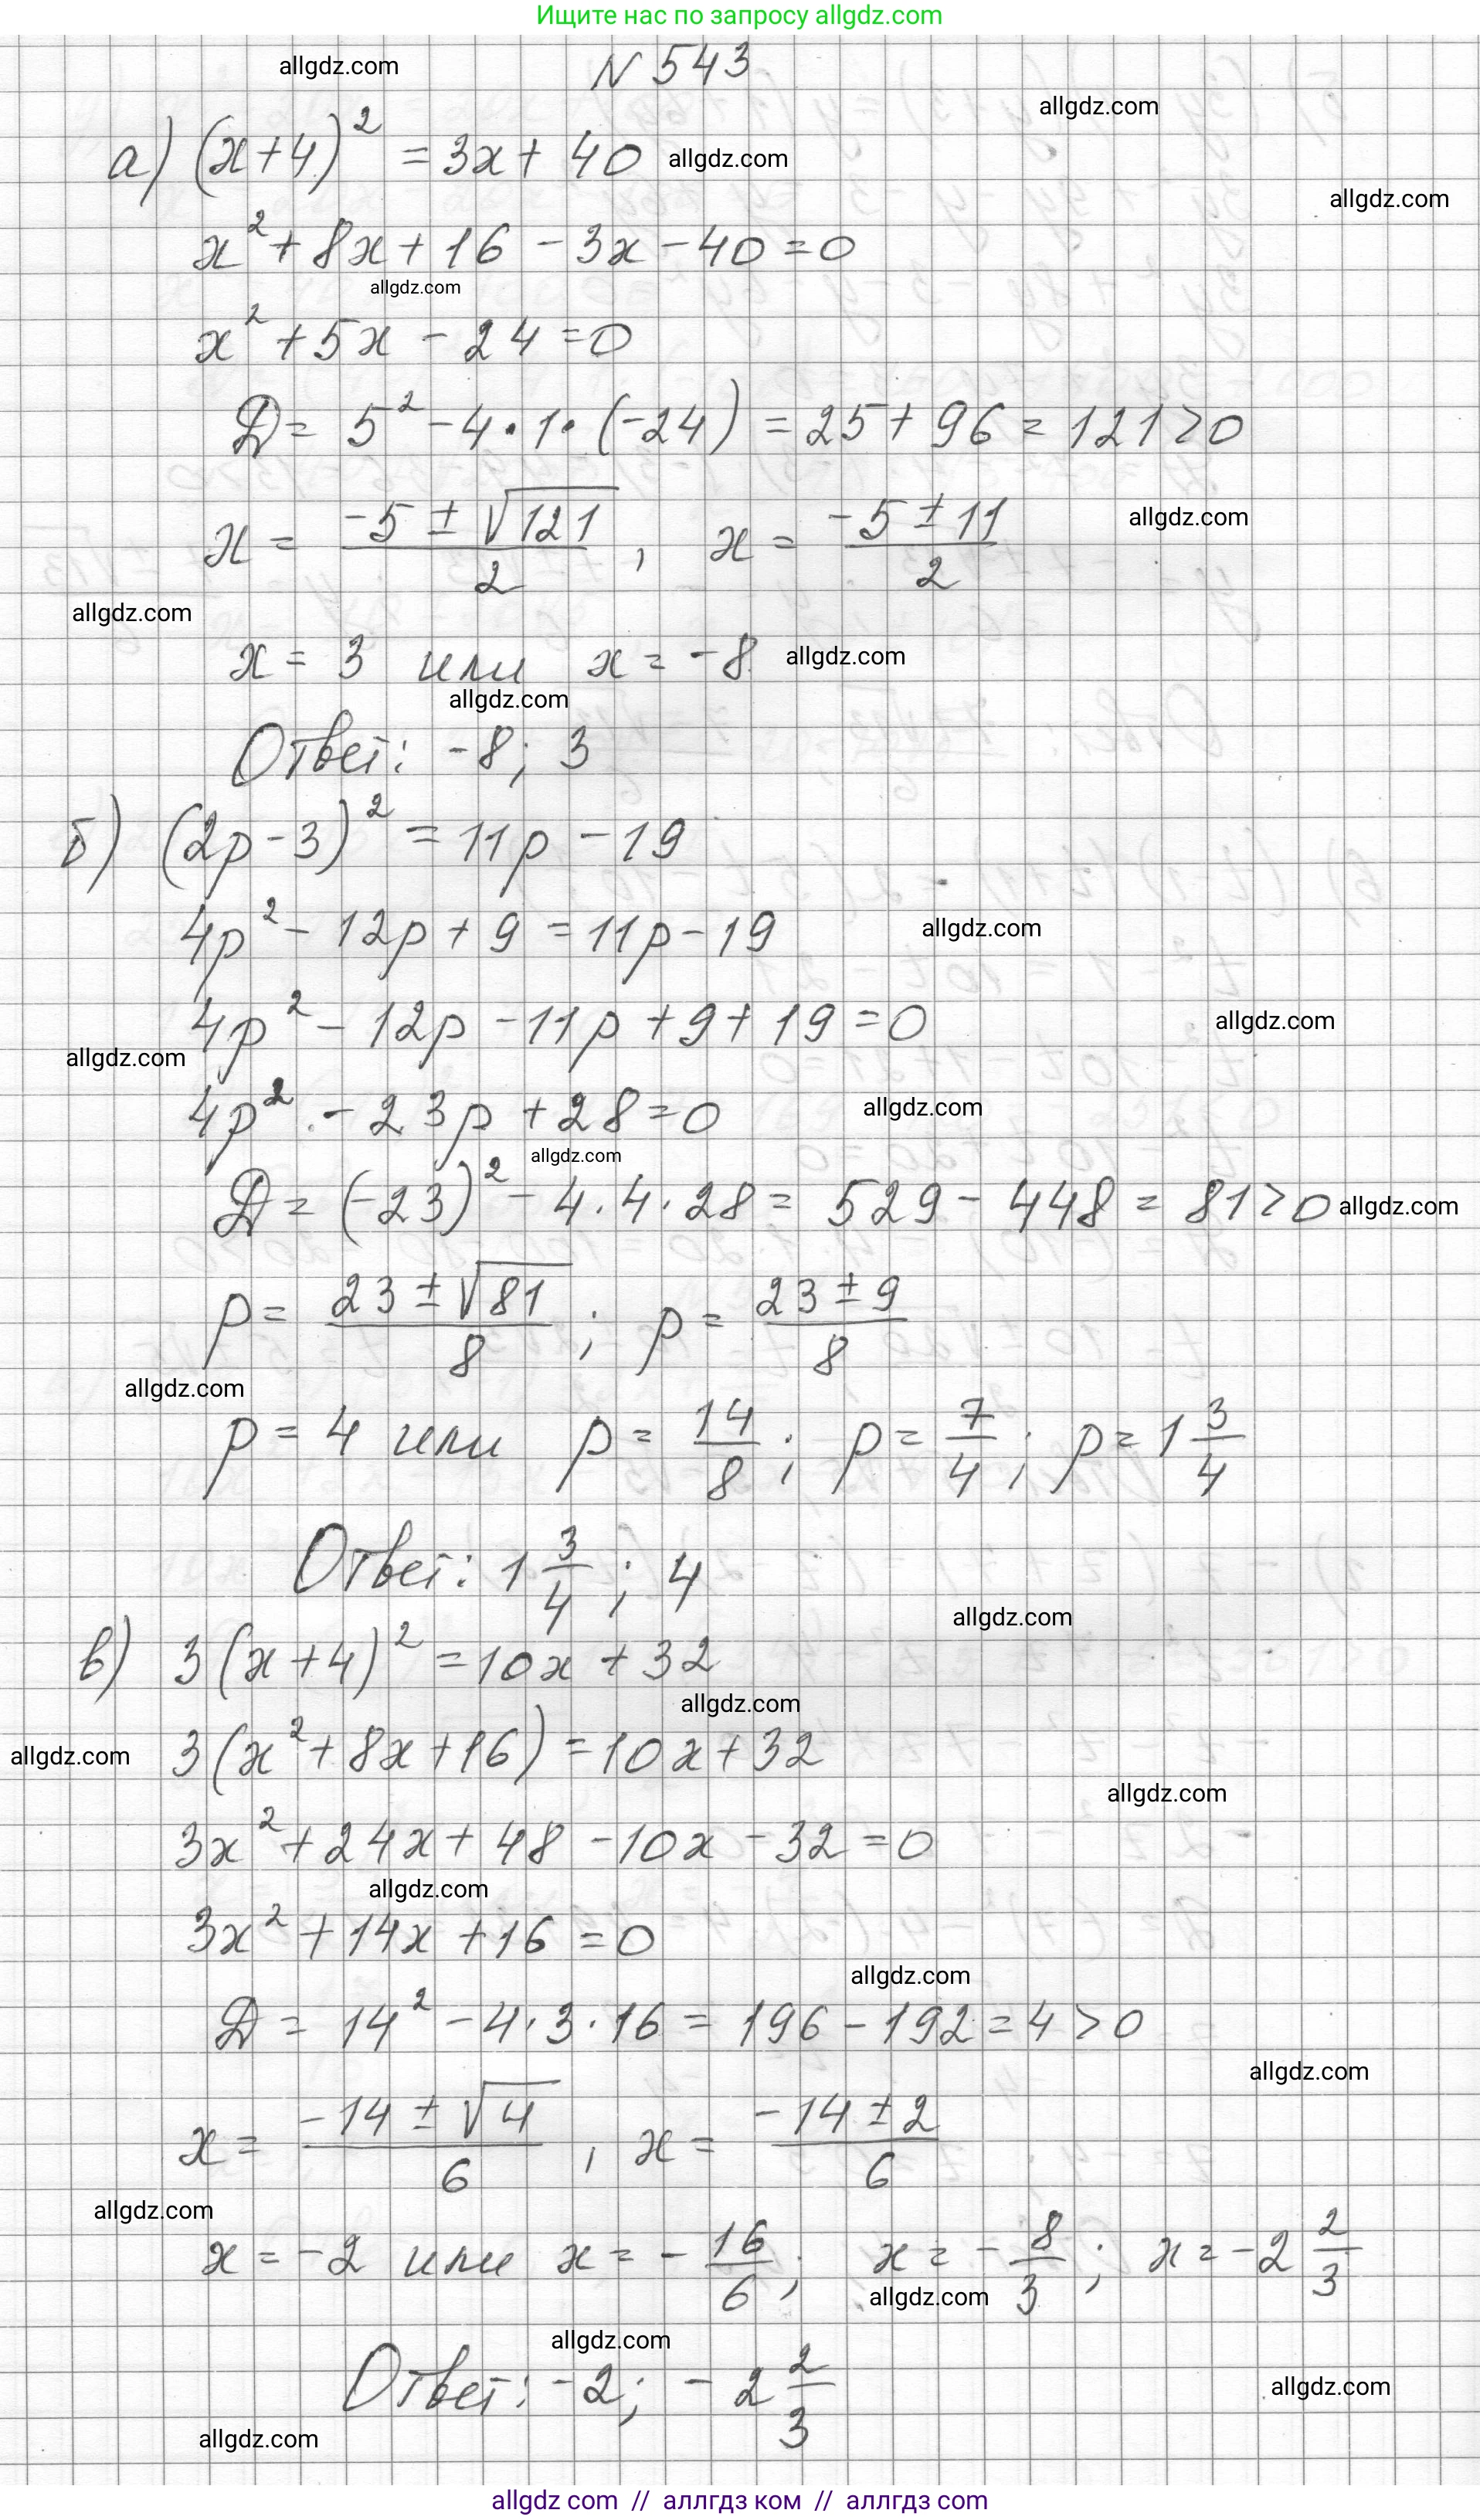 Ищите нас по запросу allgdz.com
allgdz.com
N 543
allgdz.com
а) (x+4)² = 3x + 40
allgdz.com
allgdz.com
x² + 8x + 16 - 3x - 40 = 0
allgdz.com
x² + 5x - 24 = 0
Д = 5² - 4 · 1 · (-24) = 25 + 96 = 121 > 0
x = (-5 ± √121)/2 , x = (-5 ± 11)/2
allgdz.com
allgdz.com
x = 3 или x = -8
allgdz.com
allgdz.com
Ответ: -8; 3
б) (2p - 3)² = 11p - 19
4p² - 12p + 9 = 11p - 19
allgdz.com
4p² - 12p - 11p + 9 + 19 = 0
allgdz.com
allgdz.com
4p² - 23p + 28 = 0
allgdz.com
allgdz.com
Д = (-23)² - 4 · 4 · 28 = 529 - 448 = 81 > 0
allgdz.com
p = (23 ± √81)/8 ; p = (23 ± 9)/8
allgdz.com
p = 4 или p = 14/8 ; p = 7/4 ; p = 1 3/4
Ответ: 1 3/4 ; 4
allgdz.com
в) 3(x+4)² = 10x + 32
allgdz.com
3(x² + 8x + 16) = 10x + 32
allgdz.com
allgdz.com
3x² + 24x + 48 - 10x - 32 = 0
allgdz.com
3x² + 14x + 16 = 0
allgdz.com
Д = 14² - 4 · 3 · 16 = 196 - 192 = 4 > 0
allgdz.com
x = (-14 ± √4)/6 , x = (-14 ± 2)/6
allgdz.com
x = -2 или x = - 16/6 ; x = - 8/3 ; x = -2 2/3
allgdz.com
allgdz.com
Ответ: -2; -2 2/3
allgdz.com
allgdz.com
allgdz com // аллгдз ком // аллгдз com